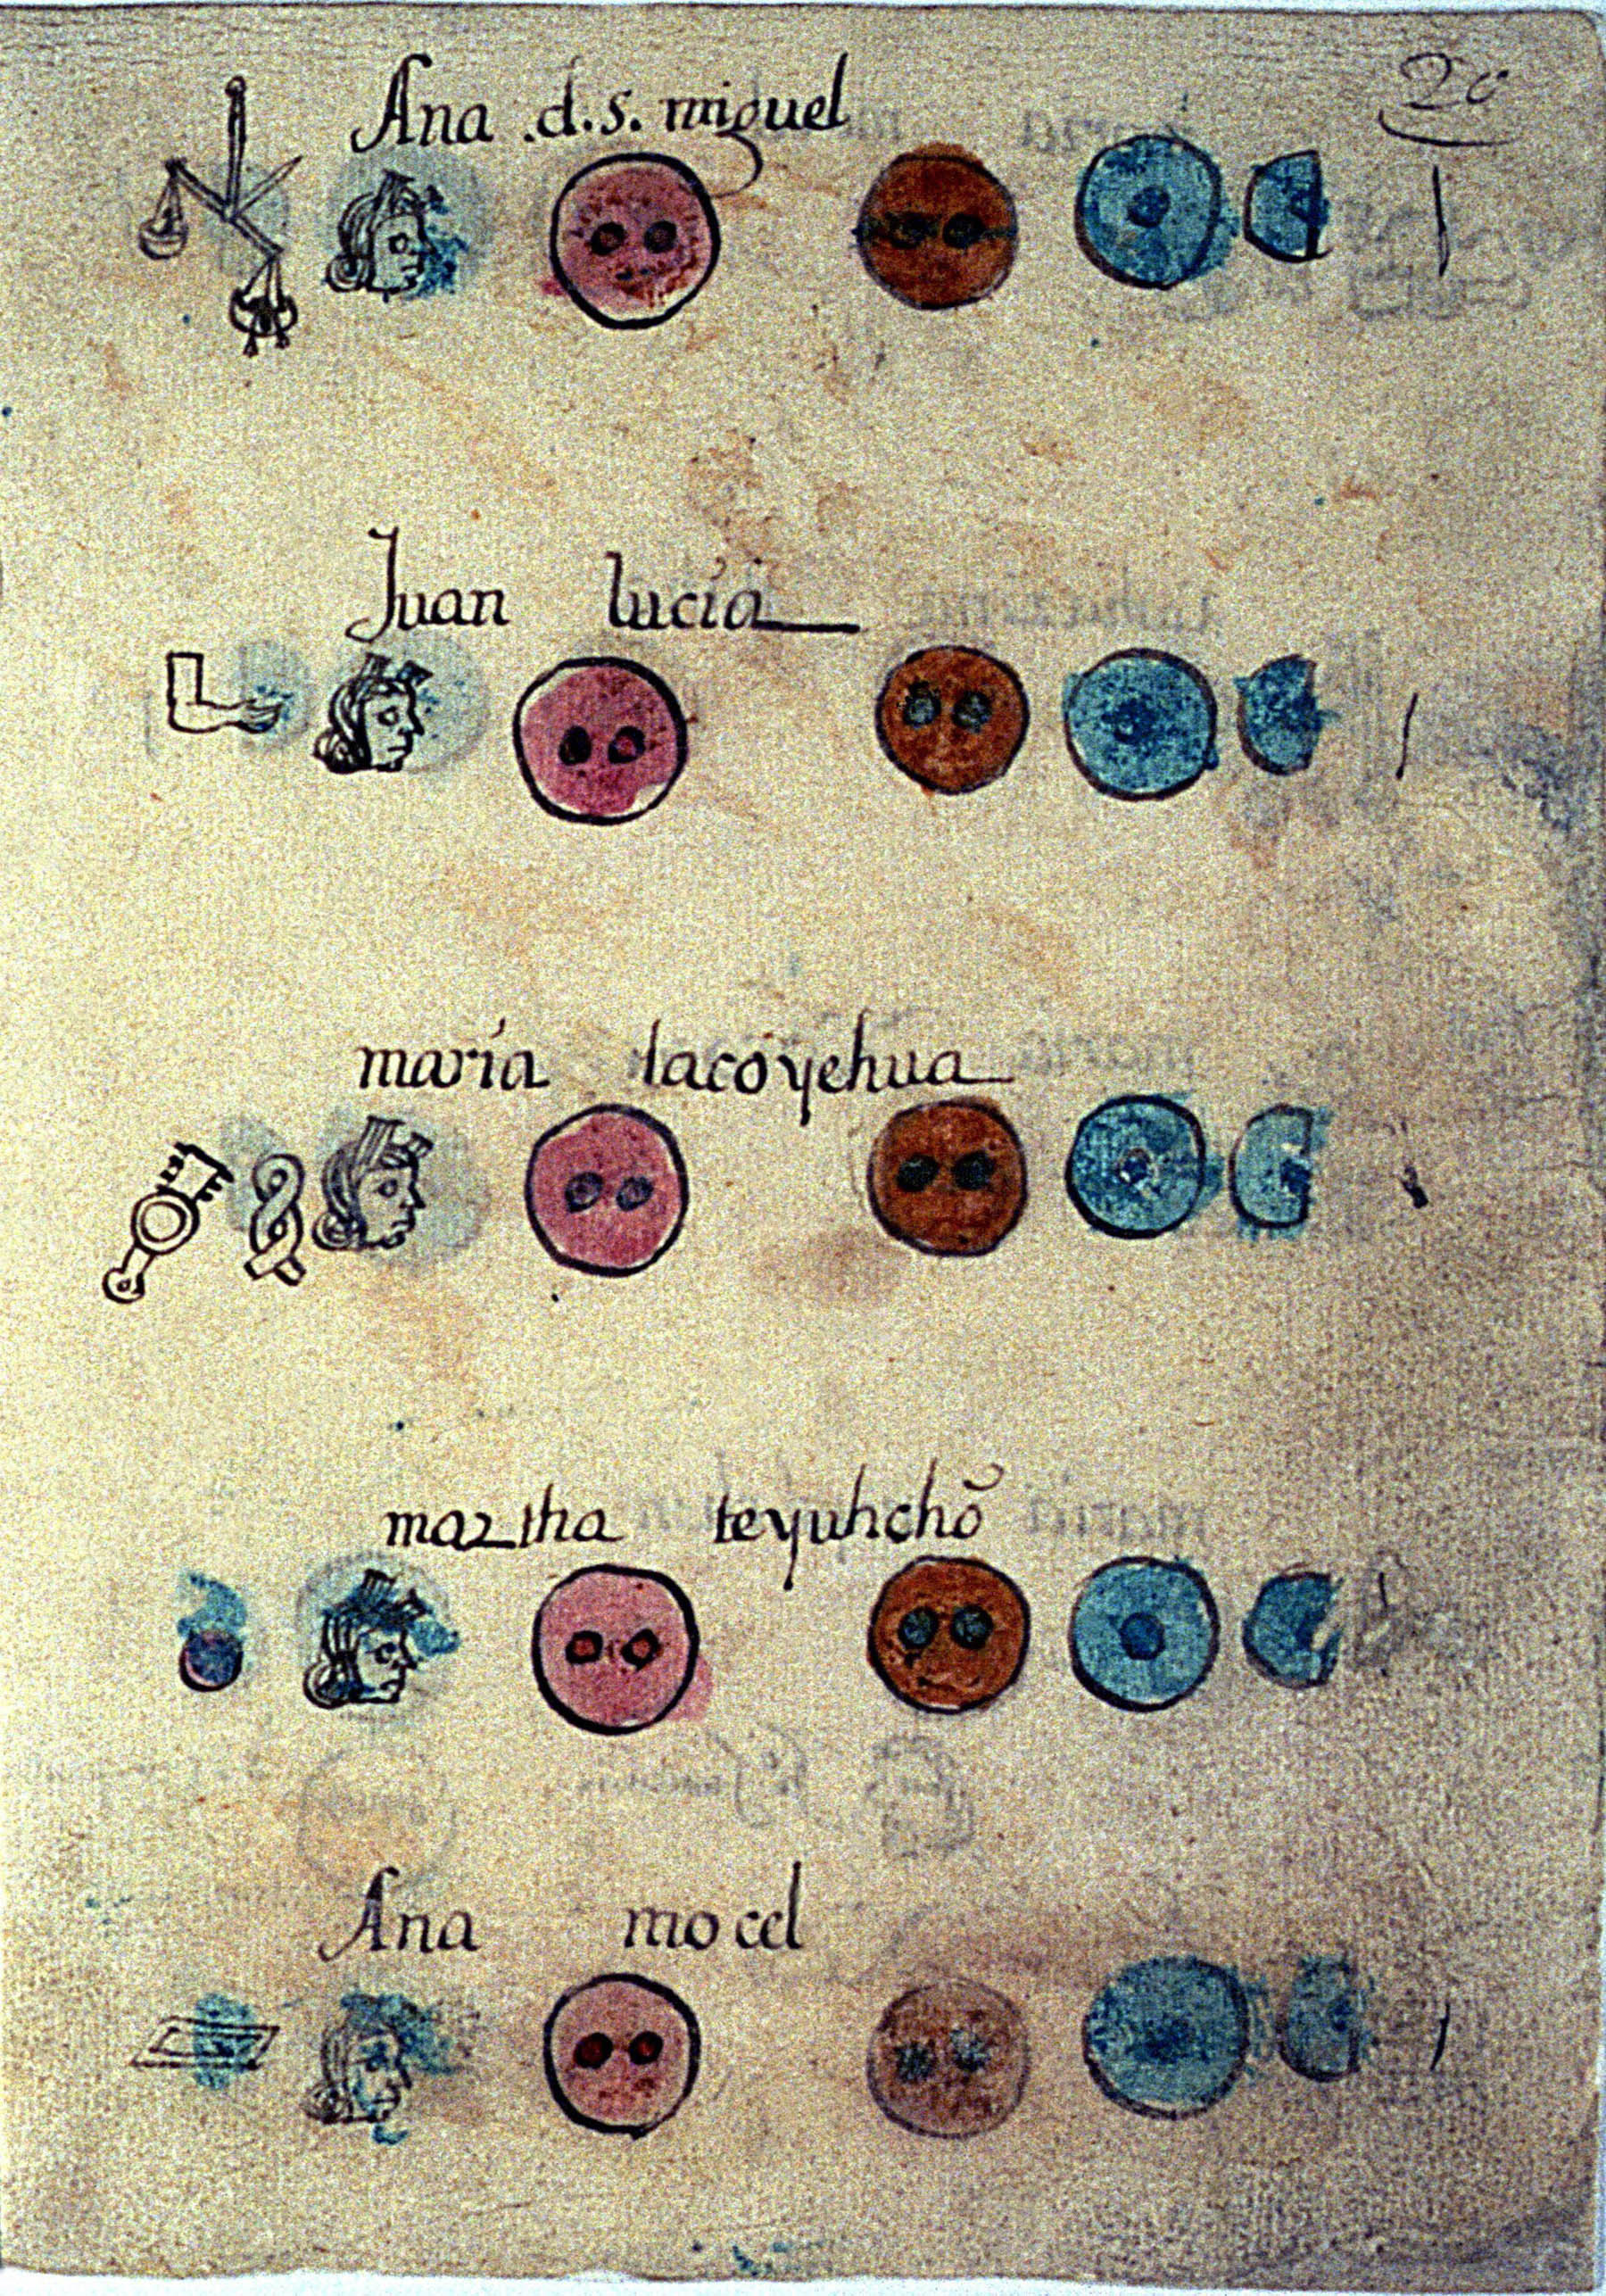 Ana .d.s. miguel
Juan lucia
maría tacoyehua
martha teyuhchō
Ana mocel